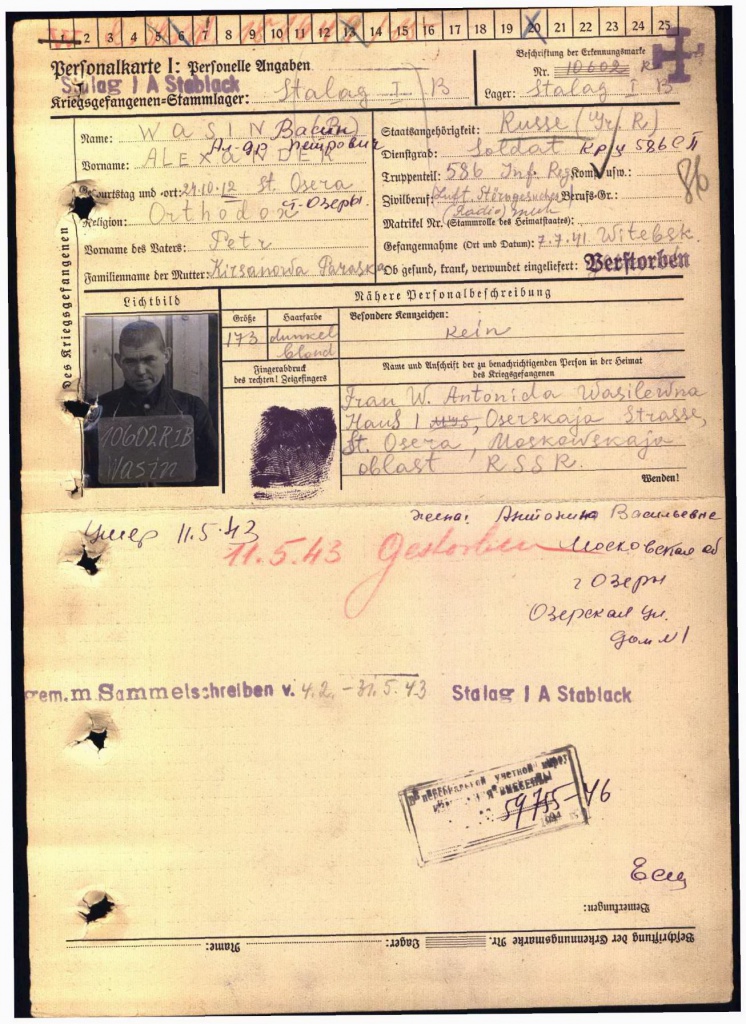 1 2 3 4 5 6 7 8 9 10 11 12 13 14 15 16 17 18 19 20 21 22 23 24 25
Personalkarte I: Personelle Angaben
Stalag I A Stablack
Kriegsgefangenen-Stammlager: Stalag I B
Beschriftung der Erkennungsmarke
Nr. 10602 R
Lager: Stalag I B
Des Kriegsgefangenen
Name: WASIN Васин
Ал-др Петрович
Vorname: ALEXANDER
Geburtstag und -ort: 24.10.12 St. Osera
г. Озеры.
Religion: Orthodox
Vorname des Vaters: Petr
Familienname der Mutter: Kirsanowa Paraska
Staatsangehörigkeit: Russe (Gr. R)
Dienstgrad: Soldat Кр-ц 586 СП
Truppenteil: 586 Inf. Reg Kom. usw.:
Zivilberuf: Berufs-Gr.:
(Radio)
86
Matrikel Nr. (Stammrolle des Heimatstaates):
Gefangennahme (Ort und Datum): 7.7.41 Witebsk
Ob gesund, krank, verwundet eingeliefert: Verstorben
Lichtbild
10602 R IB
Wasin
Nähere Personalbeschreibung
Größe
173
Haarfarbe
dunkel
blond
Besondere Kennzeichen:
Kein
Fingerabdruck
des rechten! Zeigefingers
Name und Anschrift der zu benachrichtigenden Person in der Heimat
des Kriegsgefangenen
Frau W. Antonida Wasilewna
Haus 1, Oserskaja Strasse,
St. Osera, Moskowskaja
oblast RSSR.
Wenden!
Умер 11.5.43
11.5.43 Gestorben
жена: Антонина Васильевна
Московская об
г Озеры
Озерская ул.
дом №1
gem. m. Sammelschreiben v. 4.2. - 31.5.43 Stalag I A Stablack
59755-46
Bemerkungen:
Beschriftung der Erkennungsmarke Nr. Lager: Name: